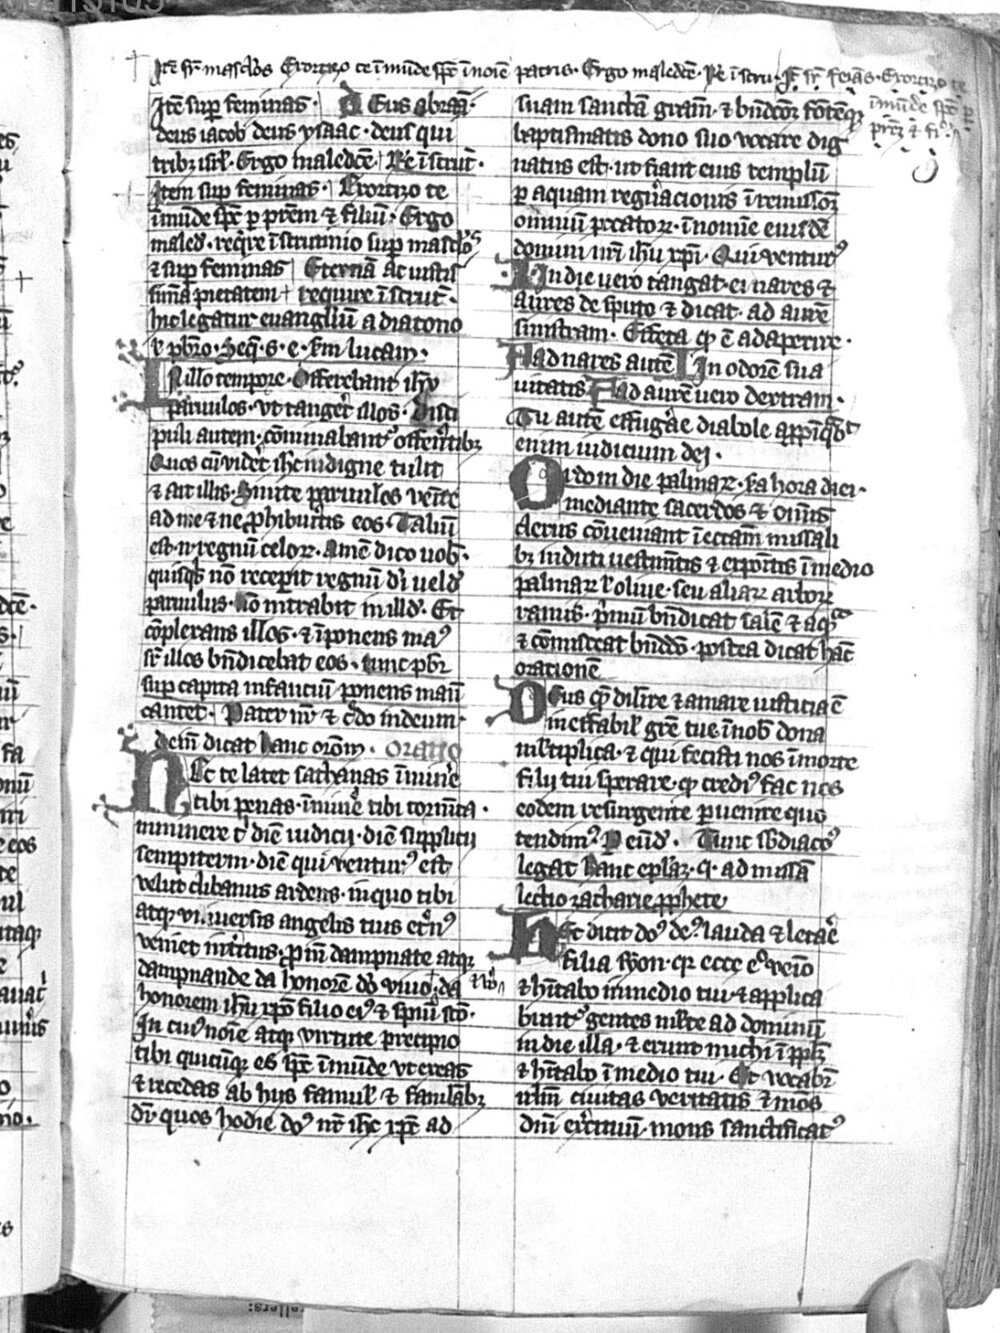 Itē sr̄ masclōs Exorzizo te īmūde sp̄c ī noīe patris. Ergo maledc̄e. Rē ī scru. It̄ sr̄ feīas. Exorcizo te
īmūde sp̄c p̄
prēz & fi
Itē sup̄ feminas. Deus abraā.
deus iacob deus ysaac. deus qui
tribz isrl̄. Ergo maledc̄e. Rē ī scrut̄.
Item sup̄ feminas. Exorcizo te
īmūde sp̄c p̄ prēm & filiū. Ergo
maled̄. req̄re ī scrutinio sup̄ masclōs
& sup̄ feminas Eternā ac iustis
simā pietatem require ī scrut̄.
hic legatur euangliū a diacono
ł pb̄ro. Seq̄. s. e. s̄m lucam.
In illo tempore. Offerebant ih̄u
paruulos. vt tanger̄t illos. Disci
puli autem. cōminabant᷒ offerētibz
Quos cū vidēt ih̄c indigne tulit
& ait illis. Sinite paruulos venīe
ad me & ne p̄hibuitis eos. Taliū
est. n̄ regnū celoꝝ. Amē dico vob̄.
quisq̄s nō receperit regnū dī uelud̄
paruulus. nō intrabit in illd̄. Et
cōplexans illos. & īponens ma᷒
sr̄ illos bn̄dicebat eos. tunc pb̄r
sup̄ capita infanciū ponens manū
cantet. Pater nr̄ & c̄do in deum.
dein̄ dicat hanc orōm. Oratio
Nec te latet sathanas īminē
tibi penas. īminē tibi tormēta.
inminere t̄ diē iudicij. diē supplicij
sempiterni. diē qui ventur᷒ est
velut clibanus ardens. in quo tibi
atq̄ vniuersis angelis tuis etn᷒
veniet int̄itus. p̄in̄ dampnate atq̄
dampnande da honorē dō viuo. da & vō
honorem ih̄u xp̄o filio ei᷒ & sp̄uī sc̄o.
In cui᷒ noīe atq̄ virtute precipio
tibi quicūq̄ es sp̄c īmūde vt exeas
& recedas ab hijs famul̄ & famulābz
dī quos hodie do᷒ nr̄ ih̄c xp̄c ad
suam sanctā grām̄. & bn̄dcōz fōteq̄
baptismatis dono suo vocare dig
natus est. ut fiant eius templū
p̄ aquam regn̄acionis ī remissōz
omniū pctatoꝝ. ī nomīe eiusdē
domini nr̄i ih̄u xp̄i. Qui ventur᷒
In die vero tangat. ei nares &
aures de sputo & dicat. ad aurē
sinistram. Effeta qd̄ ē adaperire.
Ad nares autē In odorē sua
uitatis Ad aurē uero dextram.
Tu autē effugāe diabole appīq̄bit
enim iudicium dei.
Ordo in die palmaꝝ. fa hora diei.
mediante sacerdos & om̄is
clerus cōueniant ī ecc̄am missali
bz induti uestimītis & exportis ī medio
palmaꝝ ł oliue. seu aliaꝝ arboꝝ
ramis. p̄mū bn̄dicat salē & aq̄
& cōmisceat bn̄dcō. postea dicat hāc
orationē
Deus qm̄ dilige & amare iusticia ē
ineffabil̄ grē tue ī nob̄ dona
mltiplica. & qui fecisti nos ī morte
filij tui sperare. q̄ credi᷒ fac nos
eodem resurgente p̄uenire quo
tendim᷒. P eūd̄. Tunc sb̄diacō
legat hanc ep̄laz. q̄. ad missā
lectio zacharie p̄phete
Hec dicit do᷒ de᷒ lauda & letaē
filia syon. qr ecce eō veio
& hītabo inmedio tui. & applica
bunt᷒ gentes mlte ad dominū
in die illa. & erunt michi ī pplm̄
& hītabo ī medio tui. Et vocabr̄
ihl̄m ciuitas veritatis & mōs
dn̄i exc̄ituū mons sanctificat᷒